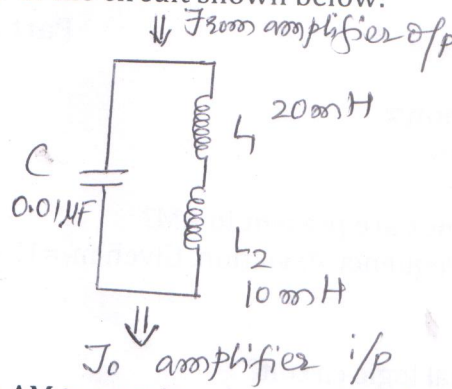 circuit shown below.
⇓ From amplifier o/p
L1 20mH
C
0.01µF
L2
10mH
⇓
To amplifier i/p